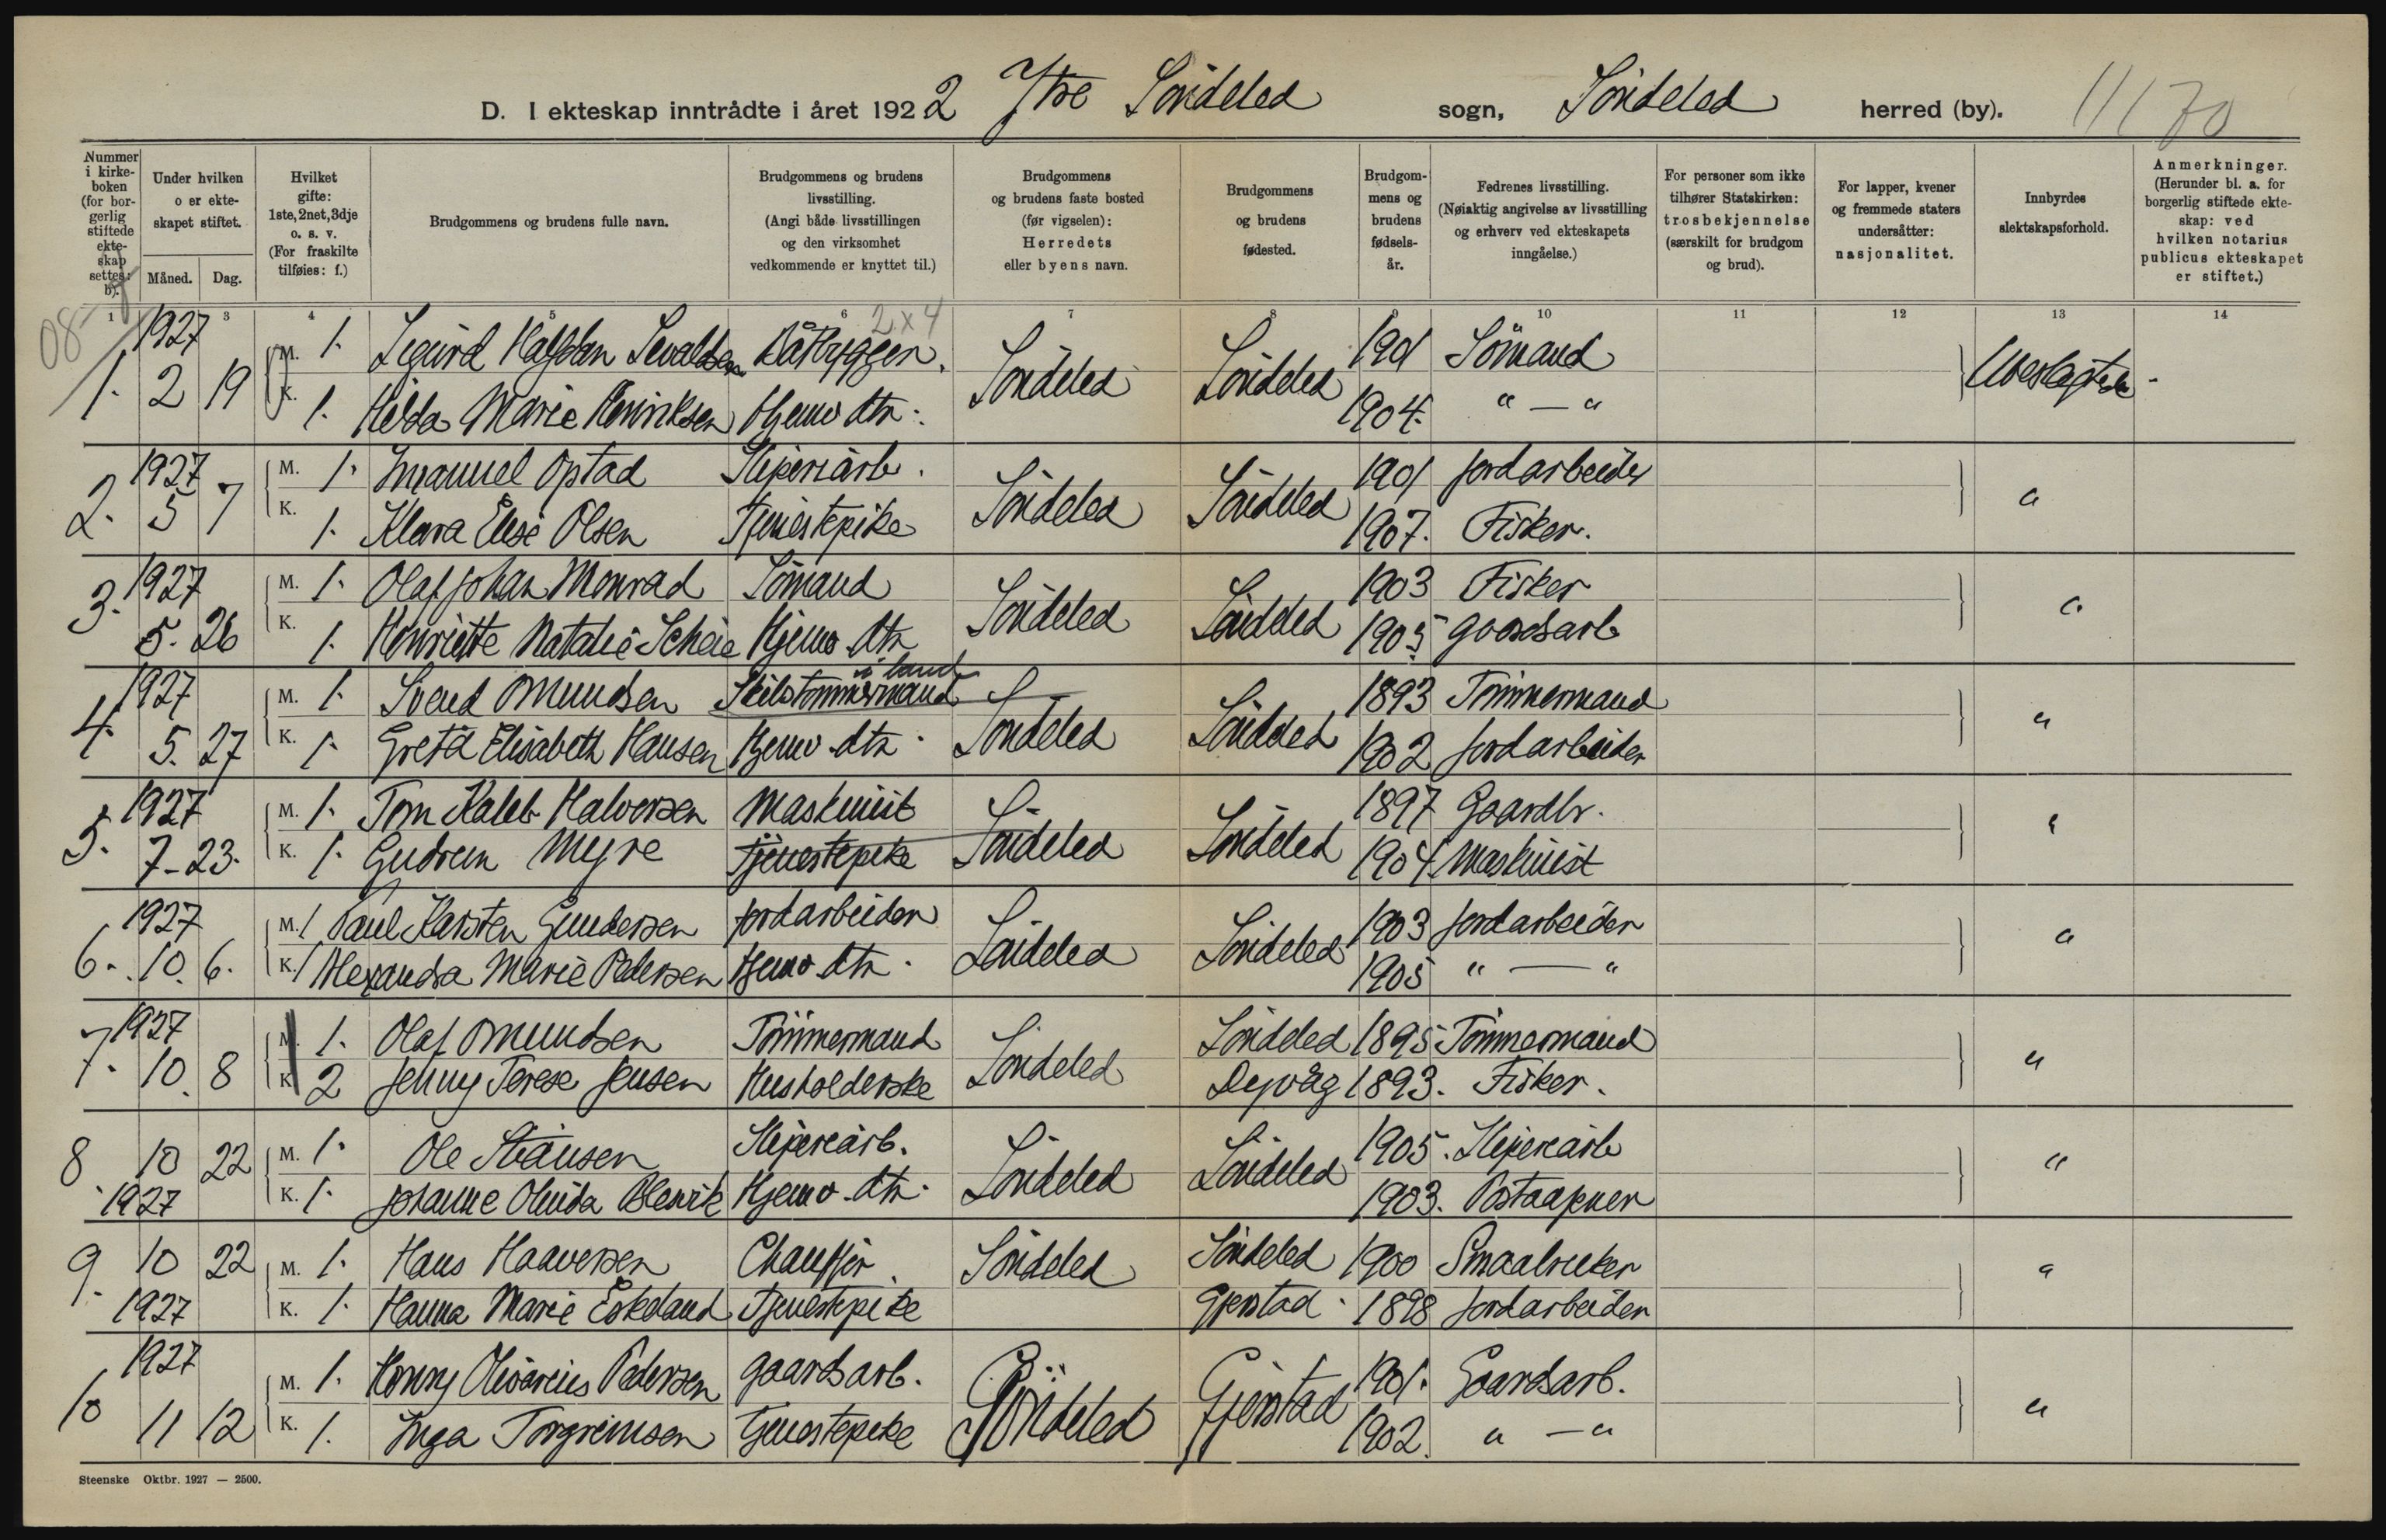 D. I ekteskap inntrådte i året 1922 Ytre Söndeled sogn, Söndeled herred (by). 11170
Nummer i kirke-boken (for bor-gerlig stiftede ekte-skap settes: b).
Under hvilken o er ekte-skapet stiftet.
Måned. Dag.
Hvilket gifte: 1ste, 2net, 3dje o. s. v. (For fraskilte tilføies: f.)
Brudgommens og brudens fulle navn.
Brudgommens og brudens livsstilling. (Angi både livsstillingen og den virksomhet vedkommende er knyttet til.)
Brudgommens og brudens faste bosted (før vigselen): Herredets eller byens navn.
Brudgommens og brudens fødested.
Brudgom-mens og brudens fødsels-år.
Fedrenes livsstilling. (Nøiaktig angivelse av livsstilling og erhverv ved ekteskapets inngåelse.)
For personer som ikke tilhører Statskirken: trosbekjennelse (særskilt for brudgom og brud).
For lapper, kvener og fremmede staters undersåtter: nasjonalitet.
Innbyrdes slektskapsforhold.
Anmerkninger. (Herunder bl. a. for borgerlig stiftede ekte-skap: ved hvilken notarius publicus ekteskapet er stiftet.)
1 3 4 5 6 7 8 9 10 11 12 13 14
08 2x4
1927
M. 1. Sigurd Halfdan Sevaldsen Båtbygger. 1901 Sömand
1. 2 19 Söndeled Söndeled Ubeslegtede.
K. 1. Hilda Marie Henriksen Hjemv. dtr. 1904. " — "
1927
M. 1. Imanuel Opstad Sliperiarb. 1901 Jordarbeider
2. 5 7 Söndeled Söndeled "
K. 1. Klara Elise Olsen Tjenestepike 1907. Fisker.
1927
M. 1. Olaf Johan Monrad Sömand 1903 Fisker
3. 5. 26 Söndeled Söndeled "
K. 1. Henriette Natalie Scheie Hjemv. dtr 1905 Gaardsarb
1927
M. 1. Svend Omundsen Skibstömmermand i land S— 1893 Tömmermand
4. 5. 27 Söndeled "
K. 1. Greta Elisabeth Hansen Hjemv. dtr. Söndeled 1902 Jordarbeider
1927
M. 1. Tom Kaleb Halvorsen Maskinist S— 1897 Gaardbr.
5. 7-23. Söndeled "
K. 1. Gudrun Myre Tjenestepike Söndeled 1904. Maskinist
1927
M. 1 Paul Karsten Gundersen Jordarbeider 1903 Jordarbeider
6. 10. 6. Söndeled Söndeled "
K. 1 Alexandra Marie Pedersen Hjemv. dtr. 1905 " — "
1927
M. 1. Olaf Omundsen Tömmermand Söndeled 1895 Tömmermand
7. 10. 8 Söndeled "
K. 2 Jenny Terese Jensen Husholderske Dypvåg 1893. Fisker.
M. 1. Ole Sliperiarb. 1905. Sliperiarb
8. 10 22 Söndeled Söndeled "
1927
K. 1. Johanne Olvida Hjemv. dtr. 1903. Postaapner
9. 10 22 M. 1. Hans Haaversen Chauffør. Söndeled Söndeled 1900 Smaabruker "
1927 K. 1. Hanna Marie Eskeland Tjenestepike Gjerstad. 1898 Jordarbeider
1927
M. 1. Henry Olivarius Pedersen Gaardsarb. 1901. Gaardsarb.
10 11 12 Söndeled Gjerstad "
K. 1. Inga Torgrimsen Tjenestepike 1902. " — "
Steenske Oktbr. 1927 — 2500.